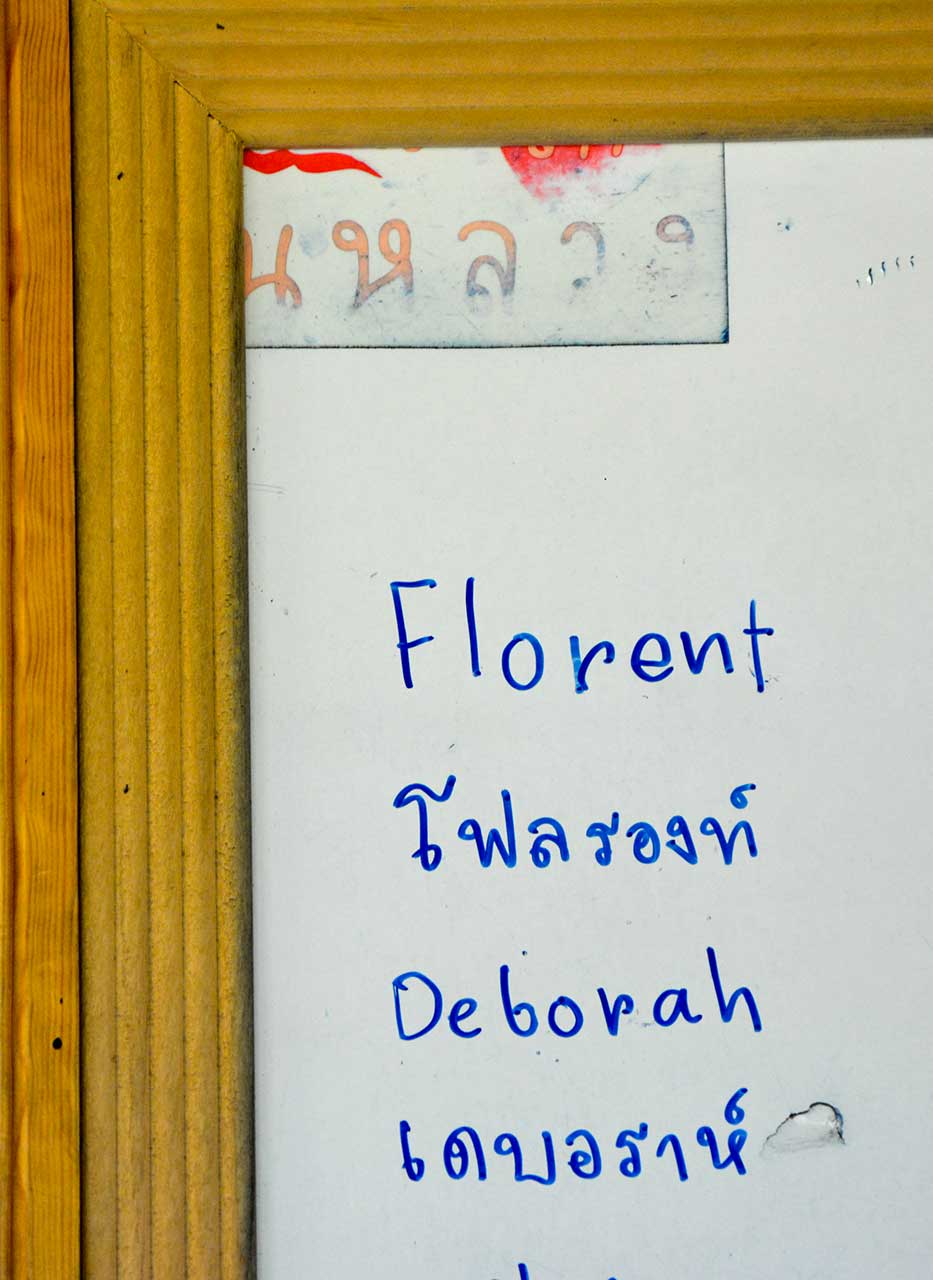 นหลวง
Florent
โฟลรองท์
Deborah
เดบอราห์